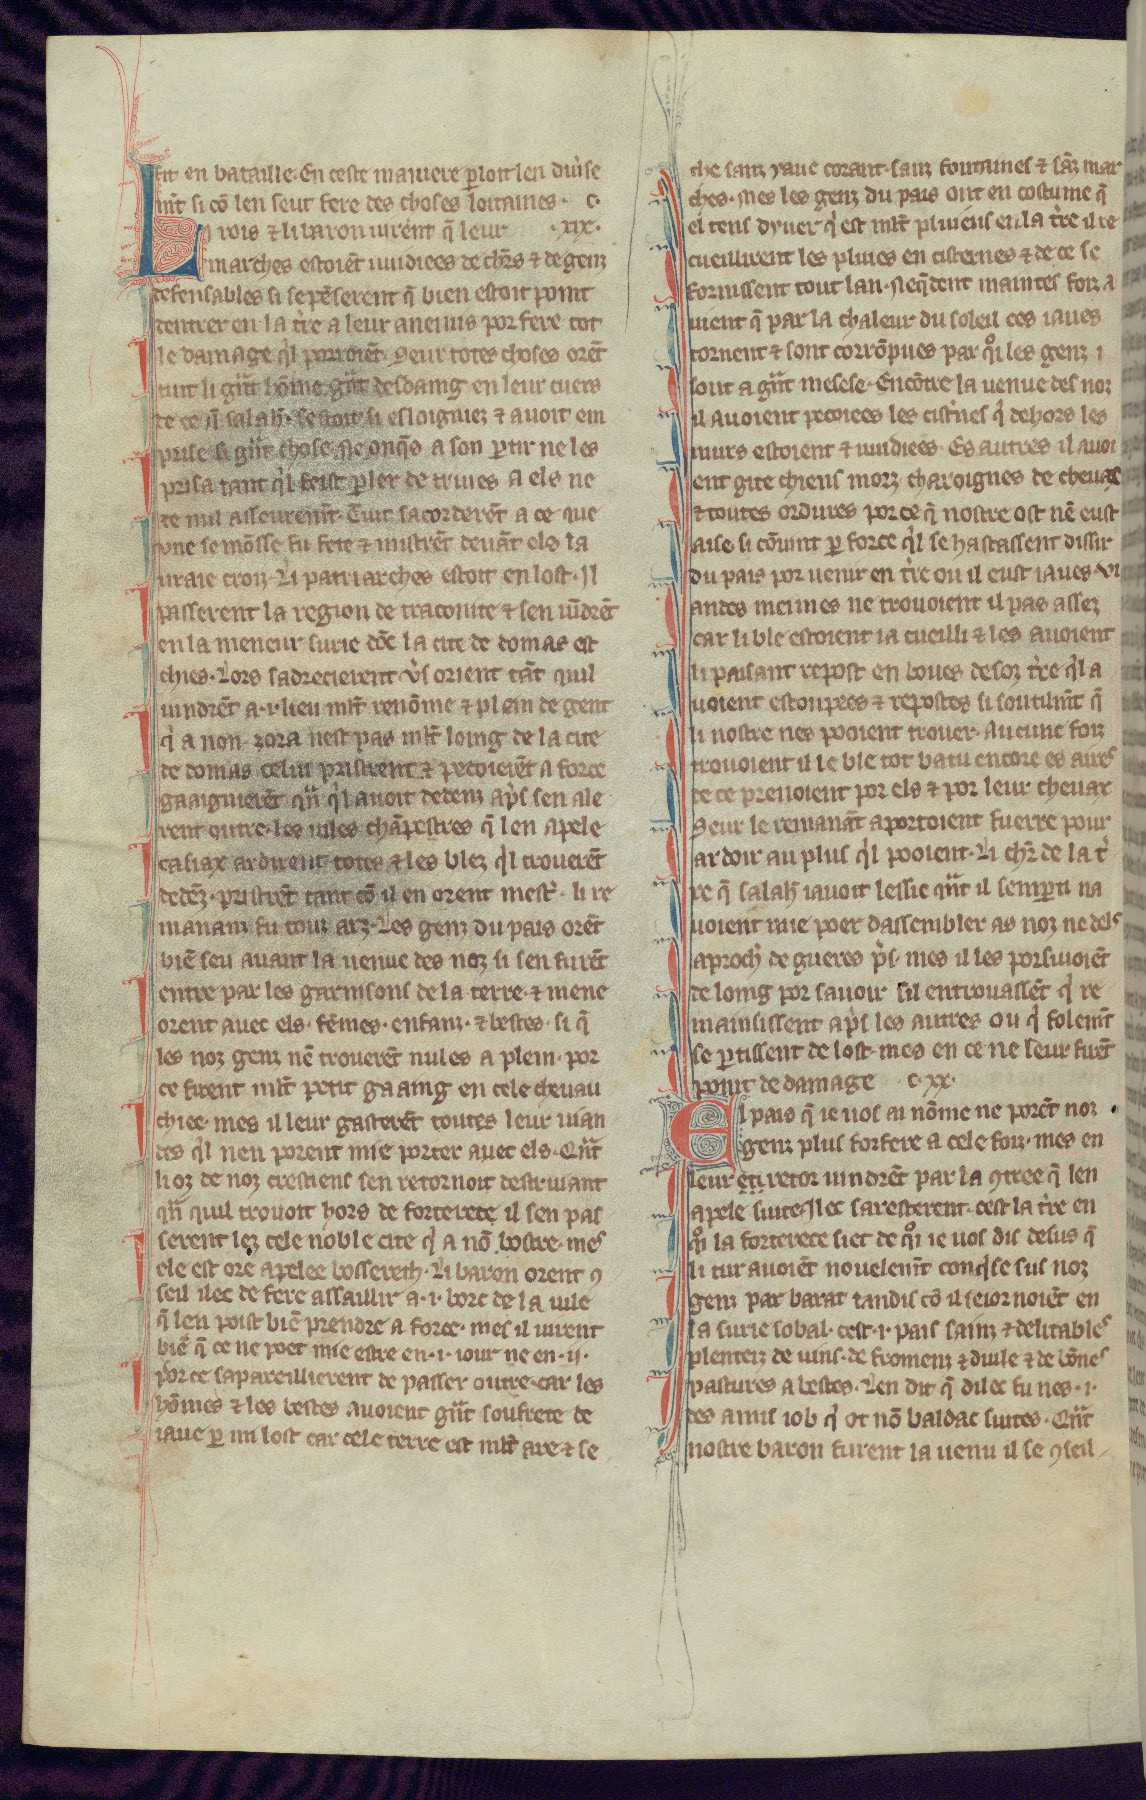 fit en bataille. En ceste maniere ꝑloit len diu̾se
mt̃ si cõ len seut fere des choses lointaines · c·
Li rois ⁊ li baron uirẽnt q̃ leur ·xix·
marches estoiẽt uuidiees de chr̃s ⁊ de genz
defensables si se pẽserent q̃ bien estoit point
dentrer en la t̾re a leur anemis por fere tot
le damage qͥl porroiẽt. Seur totes choses orẽt
tuit li gñt hõme gñt desdaing en leur cuers
de ce q̃ salah̾. sestoit si esloigniez ⁊ auoit em
prise si gñt chose. Ne onq̃s a son ꝑtir ne les
prisa tant qͥl feist ꝑler de triues a els ne
de nul asseuremt̃. Tuit sacorderẽt a ce que
une semõsse fu fete ⁊ mistrẽt deuãt els la
uraie croiz. Li patriarches estoit en lost. Il
passerent la region de traconite ⁊ sen uĩdrẽt
en la meneur surie dõt la cite de domas est
chies. Lors sadrecierent u̾s orient tãt quil
uindrẽt a ·i· lieu ml̃t renõme ⁊ plein de gent
qͥ a non. zora nest pas ml̃t loing de la cite
de domas celui pristrent ⁊ pecoierẽt a force
gaaignierẽt qñ qͥl auoit dedenz ap̃s sen ale
rent outre. les uiles chãpestres q̃ len apele
casiax ardirent totes ⁊ les blez qͥl trouerẽt
dedẽz. pristrẽt tant cõ il en orent mest̾. li re
mananz fu touz arz. Les genz du pais orẽt
biẽ seu auant la uenue des noz si sen furẽt
entre par les garnisons de la terre. ⁊ mene
orent auec els. fẽmes. enfanz. ⁊ bestes. si q̃
les noz genz nẽ trouerẽt nules a plein. por
ce firent ml̃t petit gaaing en cele cheuau
chiee. mes il leur gasterẽt toutes leur uian
des qͥl neu porent mie porter auec els. Qñt
li oz de noz crestiens sen retornoit destruiant
qñ quil trouoit hors de forterece il sen pas
serent lez cele noble cite qͥ a nõ. bostre. mes
ele est ore apelee bossereth. Li baron orent ꝯ
seil ilec de fere assaillir a ·i· borc de la uile
q̃ len poist biẽ prendre a force. mes il uirent
biẽ q̃ ce ne poet mie estre en ·i· iour ne en ·ii·
por ce sapareillierent de passer outre. car les
hõmes ⁊ les bestes auoient gñt soufrete de
iaue ꝑ mi lost car cele terre est ml̃t are ⁊ se
che sanz yaue corant. sanz fontaines ⁊ sãz mar
ches. Mes les genz du pais ont en costume q̃
el tens dyuer qͥ est ml̃t pluieus en la t̾re il re
cueillirent les pluies en cisternes ⁊ de ce se
fornissent tout lan. Neq̃dent maintes foiz a
uient q̃ par la chaleur du soleil ces iaues
tornent ⁊ sont corrõpues par qͦi les genz i
sont a gñt mesese. Encõtre la uenue des noz
il auoient pecoiees les cist̾nes qͥ dehors les
murs estoient ⁊ uuidiees. Es autres il auoi
ent gite chiens morz. charoignes de cheuax
⁊ toutes ordures por ce q̃ nostre ost nẽ eust
aise. si cõuint ꝑ force qͥl se hastassent dissir
du pais por uenir en t̾re ou il eust iaues. Vi
andes meimes ne trouoient il pas assez
car li ble estoient ia cueilli ⁊ les auoient
li paisant repost en boues desoz t̾re qͥl a
uoient estoupees ⁊ repostes si soutilmt̃ q̃
li nostre nes pooient trouer. Aucune foiz
trouoient il le ble tot batu encore es aires
de ce prenoient por els ⁊ por leur cheuax
Seur le remanãt aportoient fuerre pour
ardoir au plus qͥl pooient. Li chr̃ de la t̾
re q̃ salah̾ iauoit lessie qñt il senꝑti na
uoient mie poer dassembler as noz ne dels
aproch̾ de gueres p̃s. mes il les porsiuoiẽt
de loing por sauoir sil entrouassẽt qͥ re
mainsissent ap̃s les autres ou qͥ folemt̃
se ꝑtissent de lost. mes en ce ne leur firẽt
point de damage c·xx·
El pais q̃ ie uos ai nõme ne porẽt noz
genz plus forfere a cele foiz. mes en
leur eti retor uindrẽt par la ꝯtree q̃ len
apele suite. Ilec saresterent. cest la t̾re en
qͦi la forterece siet de qͦi ie uos dis desus q̃
li tur auoiẽt nouelemt̃ conqͥse sus noz
genz par barat tandis cõ il seiornoiẽt en
la surie sobal. cest ·i· pais sains ⁊ delitables
plenteiz de uins. de fromenz ⁊ duile ⁊ de bõnes
pastures a bestes. Len dit q̃ dilec fu nes ·i·
des amis iob qͥ ot nõ baldac suites. Qñt
nostre baron furent la uenu il se ꝯseil